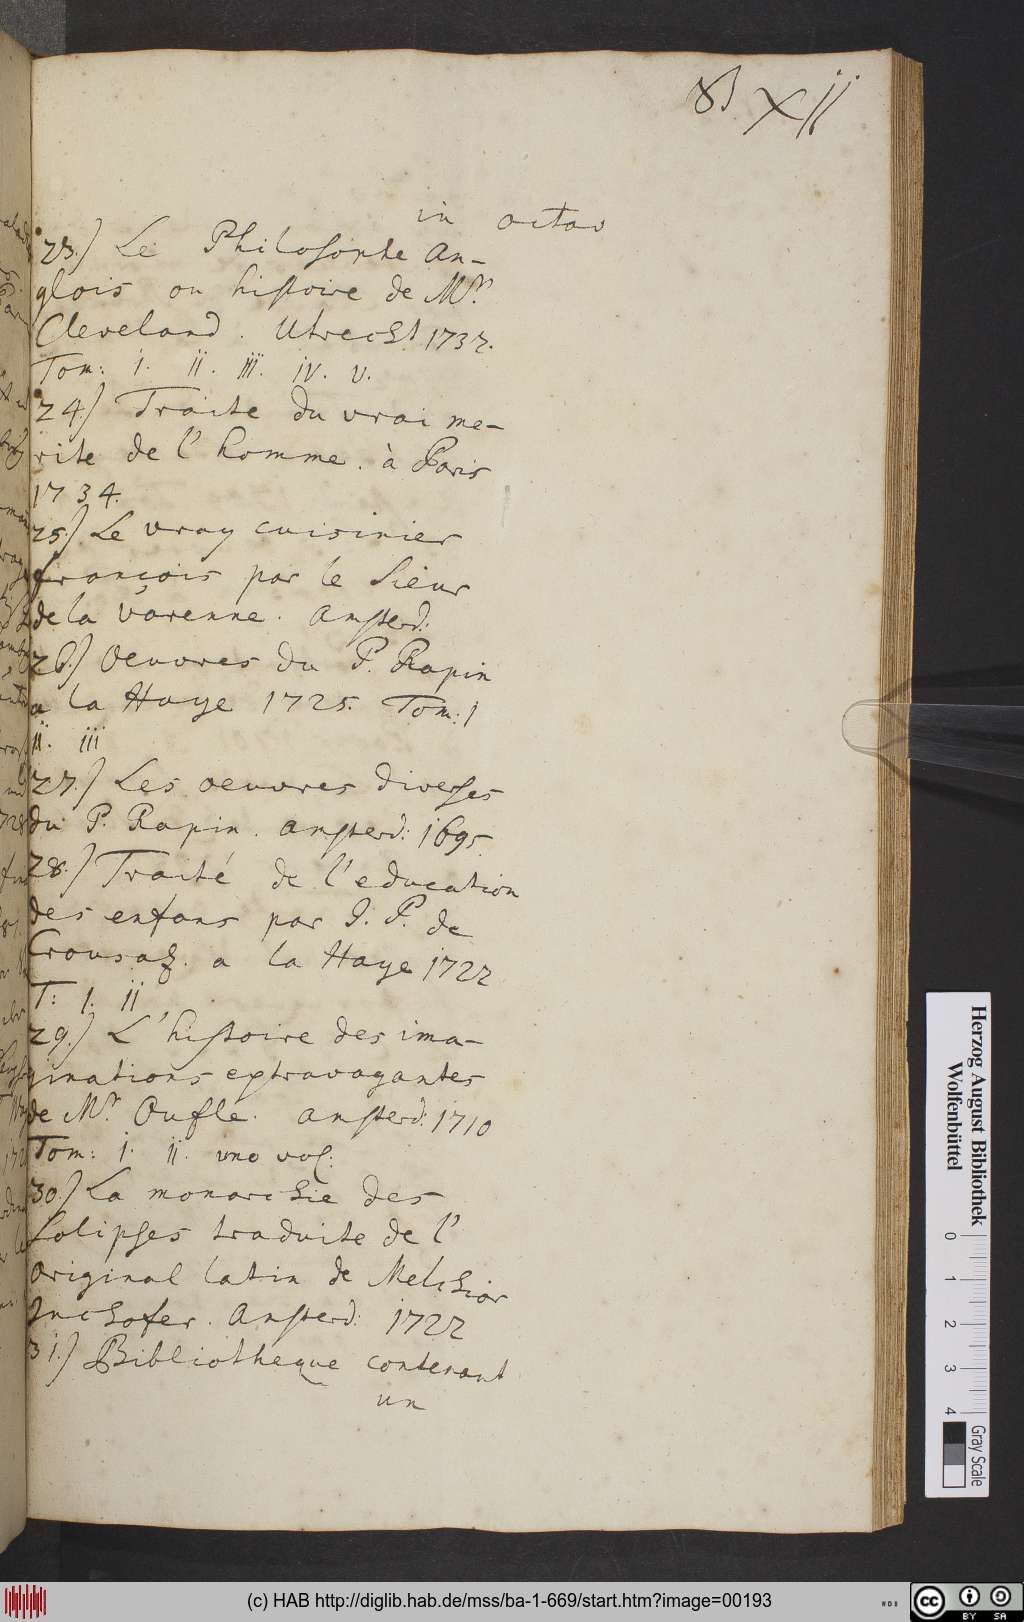 B xii
in octav
23.) Le Philosophe An-
glois ou histoire de Mr.
Cleveland. Utrecht 1732.
Tom: i. ii. iii. iv. v.
24.) Traite du vrai me-
rite de l' homme. à Paris
1734.
25.) Le vray cuisinier
françois par le Sieur
de la Varenne. Amsterd:
26.) Oeuvres du P. Rapin
a la Haye 1725. Tom: i
ii. iii
27.) Les oeuvres diverses
du P. Rapin. Amsterd: 1695.
28.) Traité de l'education
des enfans par J. P. de
Crousaz. a la Haye 1722
T: i. ii
29.) L'histoire des ima-
ginations extravagantes
de Mr. Oufle. Amsterd: 1710
Tom: i. ii. uno vol:
30.) La monarchie des
Solipses traduite de l'
original latin de Melchior
Inchofer. Amsterd: 1722
31.) Bibliotheque contenant
un
Herzog August Bibliothek
Wolfenbüttel
0 1 2 3 4
Gray Scale
(c) HAB http://diglib.hab.de/mss/ba-1-669/start.htm?image=00193
cc BY SA